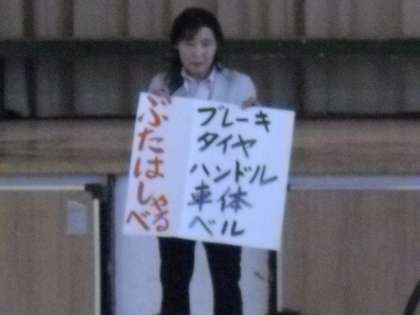 ぶたはしゃべる
ブレーキ
タイヤ
ハンドル
車体
ベル